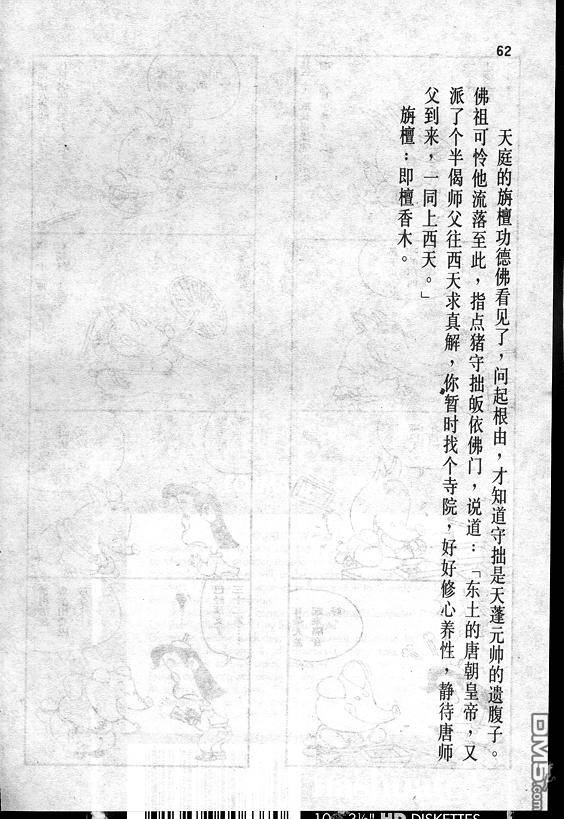 62
天庭的旃檀功德佛看见了，问起根由，才知道守拙是天蓬元帅的遗腹子。
佛祖可怜他流落至此，指点猪守拙皈依佛门，说道：「东土的唐朝皇帝，又
派了个半偈师父往西天求真解，你暂时找个寺院，好好修心养性，静待唐师
父到来，一同上西天。」
旃檀：即檀香木。
DM5.com
HD DISKETTES